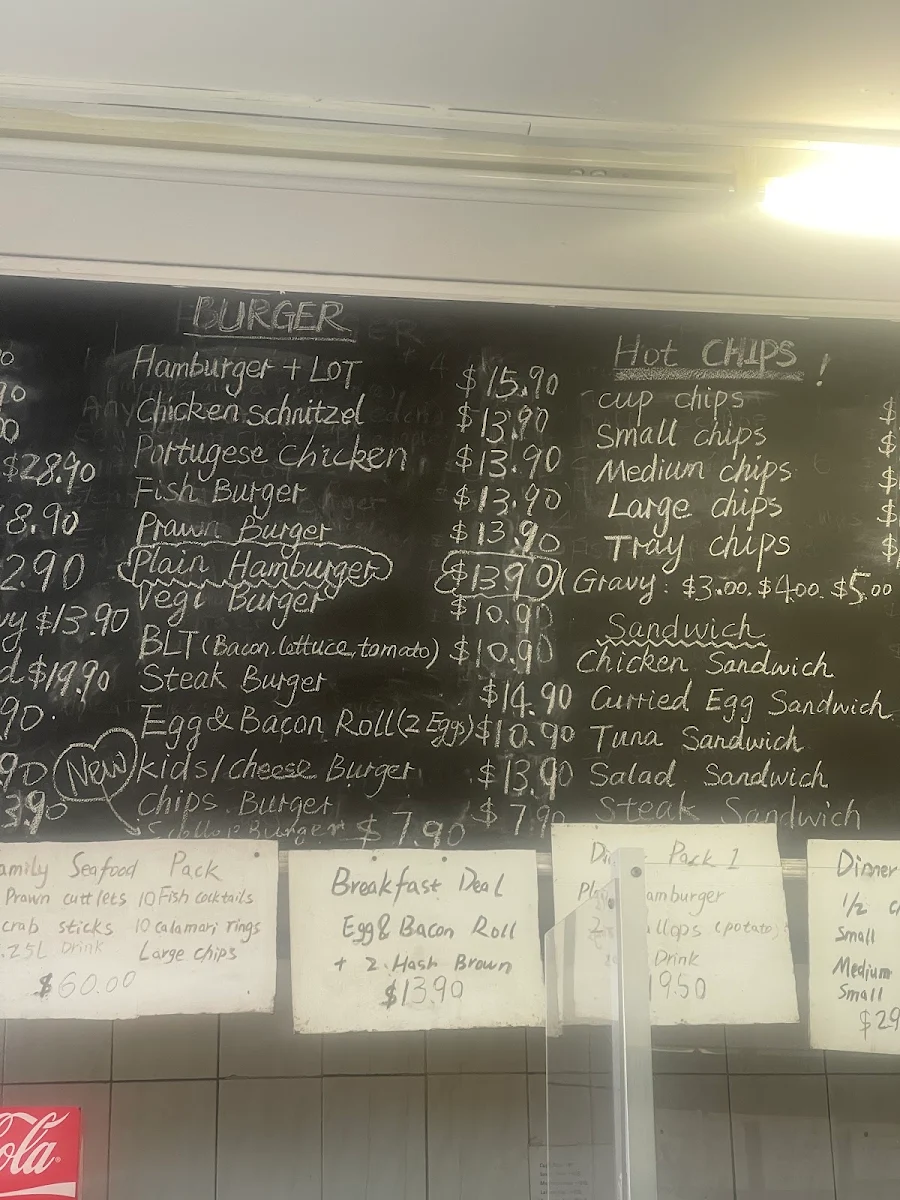 BURGER
Hamburger + LOT $15.90
Chicken schnitzel $13.90
Portugese chicken $13.90
Fish Burger $13.90
Prawn Burger $13.90
Plain Hamburger $13.90
Vegi Burger $10.90
BLT (Bacon.lettuce,tomato) $10.90
Steak Burger $14.90
Egg & Bacon Roll (2 Eggs) $10.90
New
kids/cheese Burger $13.90
chips Burger $7.90
Burger $7.90
$28.90
8.90
2.90
$13.90
$19.90
90
90
3.90
Hot CHIPS !
cup chips $
Small chips $
Medium chips $
Large chips $
Tray chips $
Gravy: $3.00. $4.00. $5.00
Sandwich
Chicken Sandwich
Curried Egg Sandwich
Tuna Sandwich
Salad Sandwich
Steak Sandwich
amily Seafood Pack
Prawn cuttlets 10 Fish cocktails
crab sticks 10 calamari rings
.25L Drink Large chips
$60.00
Breakfast Deal
Egg & Bacon Roll
+ 2 Hash Brown
$13.90
Pack 1
amburger
llops (potato)
Drink
19.50
Dinner
1/2 c
Small
Medium
Small
$29
ola